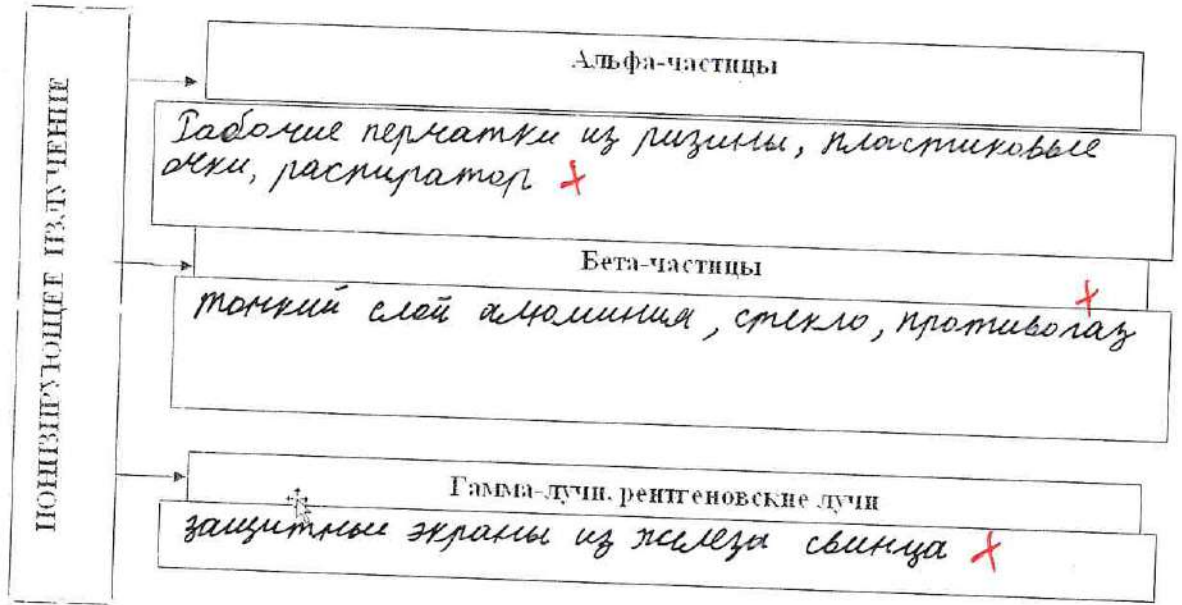 ИОНИЗИРУЮЩЕЕ ИЗЛУЧЕНИЕ
Альфа-частицы
Рабочие перчатки из ризины, пластиковые
очки, распиратор +
Бета-частицы
тонкий слой алюминия, стекло, противогаз +
Гамма-лучи. рентгеновские лучи
защитные экраны из железа свинца +